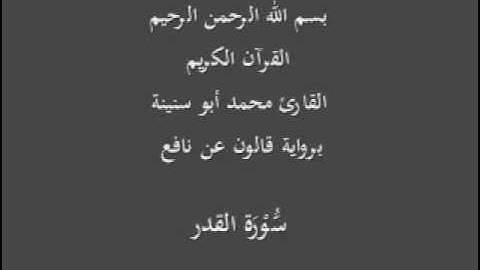 بسم الله الرحمن الرحيم
القرآن الكريم
القارئ محمد أبو سنينة
برواية قالون عن نافع
سُّوْرَة القدر